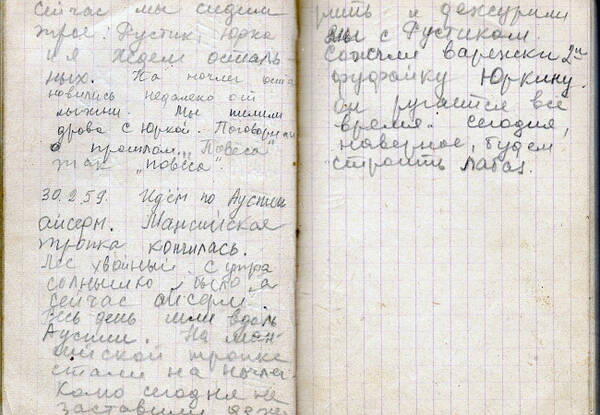 сейчас мы сидим
трое: Рустик, Юрка
и я ждем осталь-
ных. На ночлег оста
новились недалеко от
лыжни. Мы пилим
дрова с Юркой. Поговорили
о прошлом. "Повеса
так "повеса".
30.2.59. Идем по Ауспии
айсерм. Мансийская
тропка кончилась.
Лес хвойный. С утра
солнышко было, а
сейчас айсерм.
Весь день шли вдоль
Ауспии. На ман-
сийской тропке
стали на ночлег.
Колю сегодня не
заставили деже
рить и дежурили
мы с Рустиком.
Сожгли варежки 2ую
фуфайку Юркину.
Он ругается все
время. Сегодня,
наверное, будем
строить лабаз.